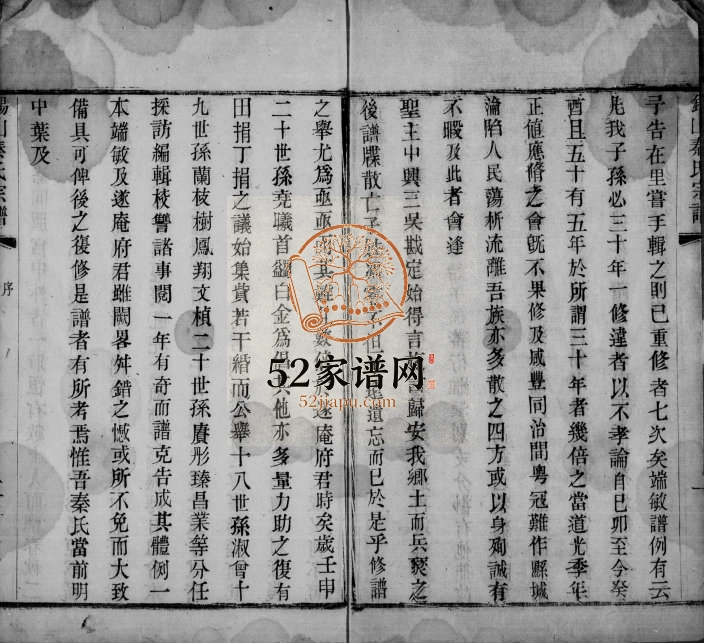 錫山秦氏宗譜
子告在里嘗手輯之則已重修者七次矣端敏譜例有云
凡我子孫必三十年一修違者以不孝論自己卯至今癸
酉且五十有五年於所謂三十年者幾倍之當道光季年
正值應脩之會旣不果修及咸豐同治間粵冦難作縣城
淪陷人民蕩析流離吾族亦多散之四方或以身殉誠有
不暇及此者會逢
聖主中興三吳戡定始得言歸安我鄉土而兵燹之
後譜牒散亡子姓遺忘而已於是乎修譜
之舉尤爲亟亟而其難遂庵府君時矣歲壬申
二十世孫堯曦首蠲白金爲其他亦多量力助之復有
田捐丁捐之議始集貲若干緡而公舉十八世孫淑會十
九世孫蘭枝樹鳳翔文楨二十世孫賡彤臻昌業等分任
採訪編輯校讐諸事閱一年有奇而譜克告成其體例一
本端敏及遂庵府君雖闕畧舛錯之憾或所不免而大致
備具可俾後之復修是譜者有所考焉惟吾秦氏當前明
中葉及
錫山秦氏宗譜
序
52家谱网
52jiapu.com